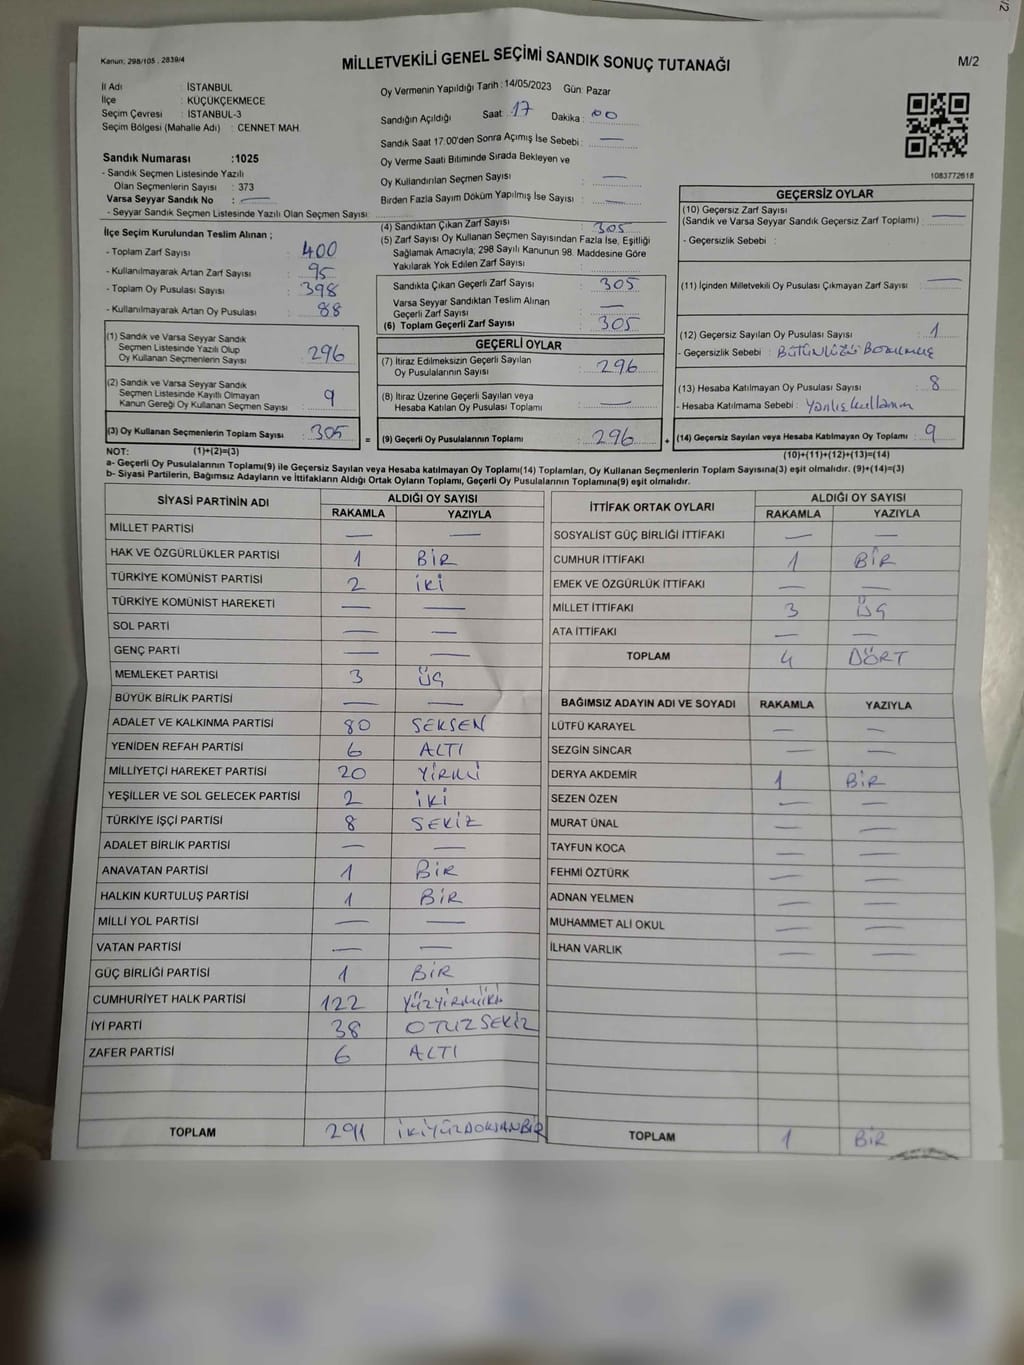 /2
Kanun: 298/105 , 2839/4
MİLLETVEKİLİ GENEL SEÇİMİ SANDIK SONUÇ TUTANAĞI
M/2
İl Adı : İSTANBUL
İlçe : KÜÇÜKÇEKMECE
Seçim Çevresi : İSTANBUL-3
Seçim Bölgesi (Mahalle Adı) : CENNET MAH.
Sandık Numarası :1025
- Sandık Seçmen Listesinde Yazılı
Olan Seçmenlerin Sayısı : 373
Varsa Seyyar Sandık No : —
- Seyyar Sandık Seçmen Listesinde Yazılı Olan Seçmen Sayısı:
İlçe Seçim Kurulundan Teslim Alınan ;
- Toplam Zarf Sayısı : 400
- Kullanılmayarak Artan Zarf Sayısı : 95
- Toplam Oy Pusulası Sayısı : 398
- Kullanılmayarak Artan Oy Pusulası : 88
(1) Sandık ve Varsa Seyyar Sandık
Seçmen Listesinde Yazılı Olup
Oy Kullanan Seçmenlerin Sayısı : 296
(2) Sandık ve Varsa Seyyar Sandık
Seçmen Listesinde Kayıtlı Olmayan
Kanun Gereği Oy Kullanan Seçmen Sayısı : 9
(3) Oy Kullanan Seçmenlerin Toplam Sayısı : 305
Oy Vermenin Yapıldığı Tarih : 14/05/2023 Gün: Pazar
Sandığın Açıldığı Saat : 17 Dakika : 00
Sandık Saat 17:00'den Sonra Açımış İse Sebebi : —
Oy Verme Saati Bitiminde Sırada Bekleyen ve
Oy Kullandırılan Seçmen Sayısı : —
Birden Fazla Sayım Döküm Yapılmış İse Sayısı : —
(4) Sandıktan Çıkan Zarf Sayısı : 305
(5) Zarf Sayısı Oy Kullanan Seçmen Sayısından Fazla İse, Eşitliği
Sağlamak Amacıyla; 298 Sayılı Kanunun 98. Maddesine Göre
Yakılarak Yok Edilen Zarf Sayısı :
Sandıkta Çıkan Geçerli Zarf Sayısı : 305
Varsa Seyyar Sandıktan Teslim Alınan
Geçerli Zarf Sayısı : —
(6) Toplam Geçerli Zarf Sayısı : 305
GEÇERLİ OYLAR
(7) İtiraz Edilmeksizin Geçerli Sayılan
Oy Pusulalarının Sayısı : 296
(8) İtiraz Üzerine Geçerli Sayılan veya
Hesaba Katılan Oy Pusulası Toplamı : —
= (9) Geçerli Oy Pusulalarının Toplamı : 296 +
1083772618
GEÇERSİZ OYLAR
(10) Geçersiz Zarf Sayısı
(Sandık ve Varsa Seyyar Sandık Geçersiz Zarf Toplamı) : —
- Geçersizlik Sebebi :
(11) İçinden Milletvekili Oy Pusulası Çıkmayan Zarf Sayısı : —
(12) Geçersiz Sayılan Oy Pusulası Sayısı : 1
- Geçersizlik Sebebi : BÜTÜNLÜĞÜ BOZULMUŞ
(13) Hesaba Katılmayan Oy Pusulası Sayısı : 8
- Hesaba Katılmama Sebebi : Yanlış kullanım
(14) Geçersiz Sayılan veya Hesaba Katılmayan Oy Toplamı : 9
NOT: (1)+(2)=(3)
(10)+(11)+(12)+(13)=(14)
a- Geçerli Oy Pusulalarının Toplamı(9) ile Geçersiz Sayılan veya Hesaba katılmayan Oy Toplamı(14) Toplamları, Oy Kullanan Seçmenlerin Toplam Sayısına(3) eşit olmalıdır. (9)+(14)=(3)
b- Siyasi Partilerin, Bağımsız Adayların ve İttifakların Aldığı Ortak Oyların Toplamı, Geçerli Oy Pusulalarının Toplamına(9) eşit olmalıdır.
SİYASİ PARTİNİN ADI ALDIĞI OY SAYISI
RAKAMLA YAZIYLA
MİLLET PARTİSİ — —
HAK VE ÖZGÜRLÜKLER PARTİSİ 1 BİR
TÜRKİYE KOMÜNİST PARTİSİ 2 İKİ
TÜRKİYE KOMÜNİST HAREKETİ — —
SOL PARTİ — —
GENÇ PARTİ — —
MEMLEKET PARTİSİ 3 ÜÇ
BÜYÜK BİRLİK PARTİSİ — —
ADALET VE KALKINMA PARTİSİ 80 SEKSEN
YENİDEN REFAH PARTİSİ 6 ALTI
MİLLİYETÇİ HAREKET PARTİSİ 20 YİRMİ
YEŞİLLER VE SOL GELECEK PARTİSİ 2 İKİ
TÜRKİYE İŞÇİ PARTİSİ 8 SEKİZ
ADALET BİRLİK PARTİSİ — —
ANAVATAN PARTİSİ 1 BİR
HALKIN KURTULUŞ PARTİSİ 1 BİR
MİLLİ YOL PARTİSİ — —
VATAN PARTİSİ — —
GÜÇ BİRLİĞİ PARTİSİ 1 BİR
CUMHURİYET HALK PARTİSİ 122 YÜZYİRMİİKİ
İYİ PARTİ 38 OTUZSEKİZ
ZAFER PARTİSİ 6 ALTI
TOPLAM 291 İKİYÜZDOKSANBİR
İTTİFAK ORTAK OYLARI ALDIĞI OY SAYISI
RAKAMLA YAZIYLA
SOSYALİST GÜÇ BİRLİĞİ İTTİFAKI — —
CUMHUR İTTİFAKI 1 BİR
EMEK VE ÖZGÜRLÜK İTTİFAKI — —
MİLLET İTTİFAKI 3 ÜÇ
ATA İTTİFAKI — —
TOPLAM 4 DÖRT
BAĞIMSIZ ADAYIN ADI VE SOYADI RAKAMLA YAZIYLA
LÜTFÜ KARAYEL — —
SEZGİN SİNCAR — —
DERYA AKDEMİR 1 BİR
SEZEN ÖZEN — —
MURAT ÜNAL — —
TAYFUN KOCA — —
FEHMİ ÖZTÜRK — —
ADNAN YELMEN — —
MUHAMMET ALİ OKUL — —
İLHAN VARLIK — —
TOPLAM 1 BİR